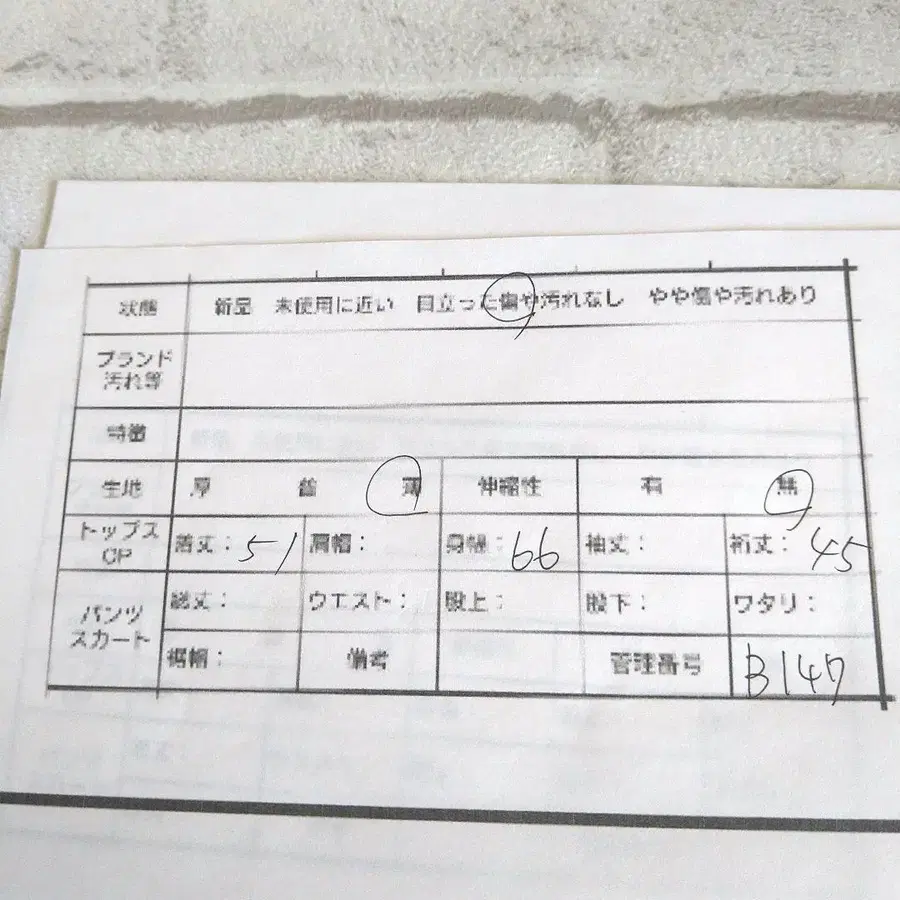 状態 新品 未使用に近い 目立った傷や汚れなし やや傷や汚れあり
ブランド
汚れ等
特徴
生地 厚 普 薄 伸縮性 有 無
トップス
OP
着丈: 51 肩幅: 身幅: 66 袖丈: 裄丈: 45
パンツ
スカート
総丈: ウエスト: 股上: 股下: ワタリ:
裾幅: 備考 管理番号 B147